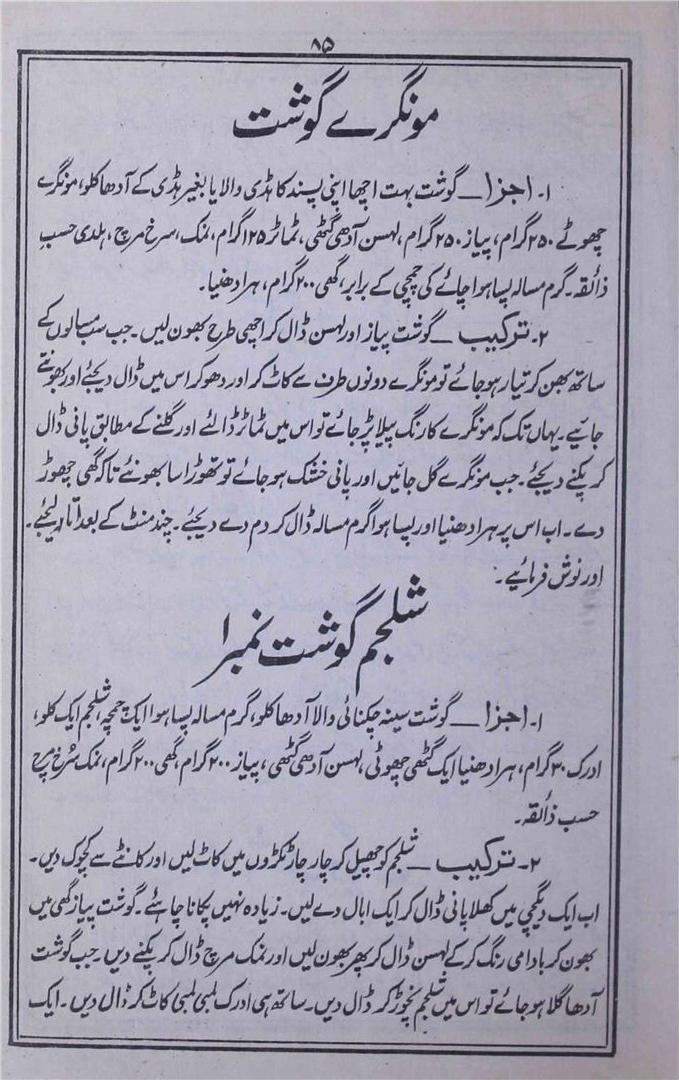 ۸۵
مونگرے گوشت
۱۔ اجزا — گوشت بہت اچھا اپنی پسند کا ہڈی والا یا بغیر ہڈی کے آدھا کلو، مونگرے
چھوٹے ۲۵۰ گرام، پیاز ۲۵۰ گرام، لہسن آدھی گٹھی، ٹماٹر ۱۲۵ گرام، نمک، سرخ مرچ، ہلدی حسبِ
ذائقہ۔ گرم مسالہ پسا ہوا چائے کی چمچی کے برابر، گھی ۲۰۰ گرام، ہرا دھنیا۔
۲۔ ترکیب — گوشت پیاز اور لہسن ڈال کر اچھی طرح بھون لیں۔ جب سب مسالوں کے
ساتھ بھن کر تیار ہو جائے تو مونگرے دونوں طرف سے کاٹ کر اور دھو کر اس میں ڈال دیجئے اور بھونتے
جائیے۔ یہاں تک کہ مونگرے کا رنگ پیلا پڑ جائے تو اس میں ٹماٹر ڈالئے اور گلنے کے مطابق پانی ڈال
کر پکنے دیجئے۔ جب مونگرے گل جائیں اور پانی خشک ہو جائے تو تھوڑا سا بھونئے تاکہ گھی چھوڑ
دے۔ اب اس پر ہرا دھنیا اور پسا ہوا گرم مسالہ ڈال کر دم دے دیجئے۔ چند منٹ کے بعد اتار لیجئے۔
اور نوش فرمائیے۔
شلجم گوشت نمبر ۱
۱۔ اجزا — گوشت سینہ چکنائی والا آدھا کلو، گرم مسالہ پسا ہوا ایک چمچہ، شلجم ایک کلو،
ادرک ۳۰ گرام، ہرا دھنیا ایک گٹھی چھوٹی، لہسن آدھی گٹھی، پیاز ۲۰۰ گرام، گھی ۲۰۰ گرام، نمک سُرخ مرچ
حسب ذائقہ۔
۲۔ ترکیب — شلجم کو چھیل کر چار چار ٹکڑوں میں کاٹ لیں اور کانٹے سے کچوک دیں۔
اب ایک دیگچی میں کھلا پانی ڈال کر ایک ابال دے لیں۔ زیادہ نہیں پکانا چاہئے۔ گوشت پیاز گھی میں
بھون کر بادامی رنگ کر کے لہسن ڈال کر پھر بھون لیں اور نمک مرچ ڈال کر پکنے دیں۔ جب گوشت
آدھا گلا ہو جائے تو اس میں شلجم نچوڑ کر ڈال دیں۔ ساتھ ہی ادرک لمبی لمبی کاٹ کر ڈال دیں۔ ایک